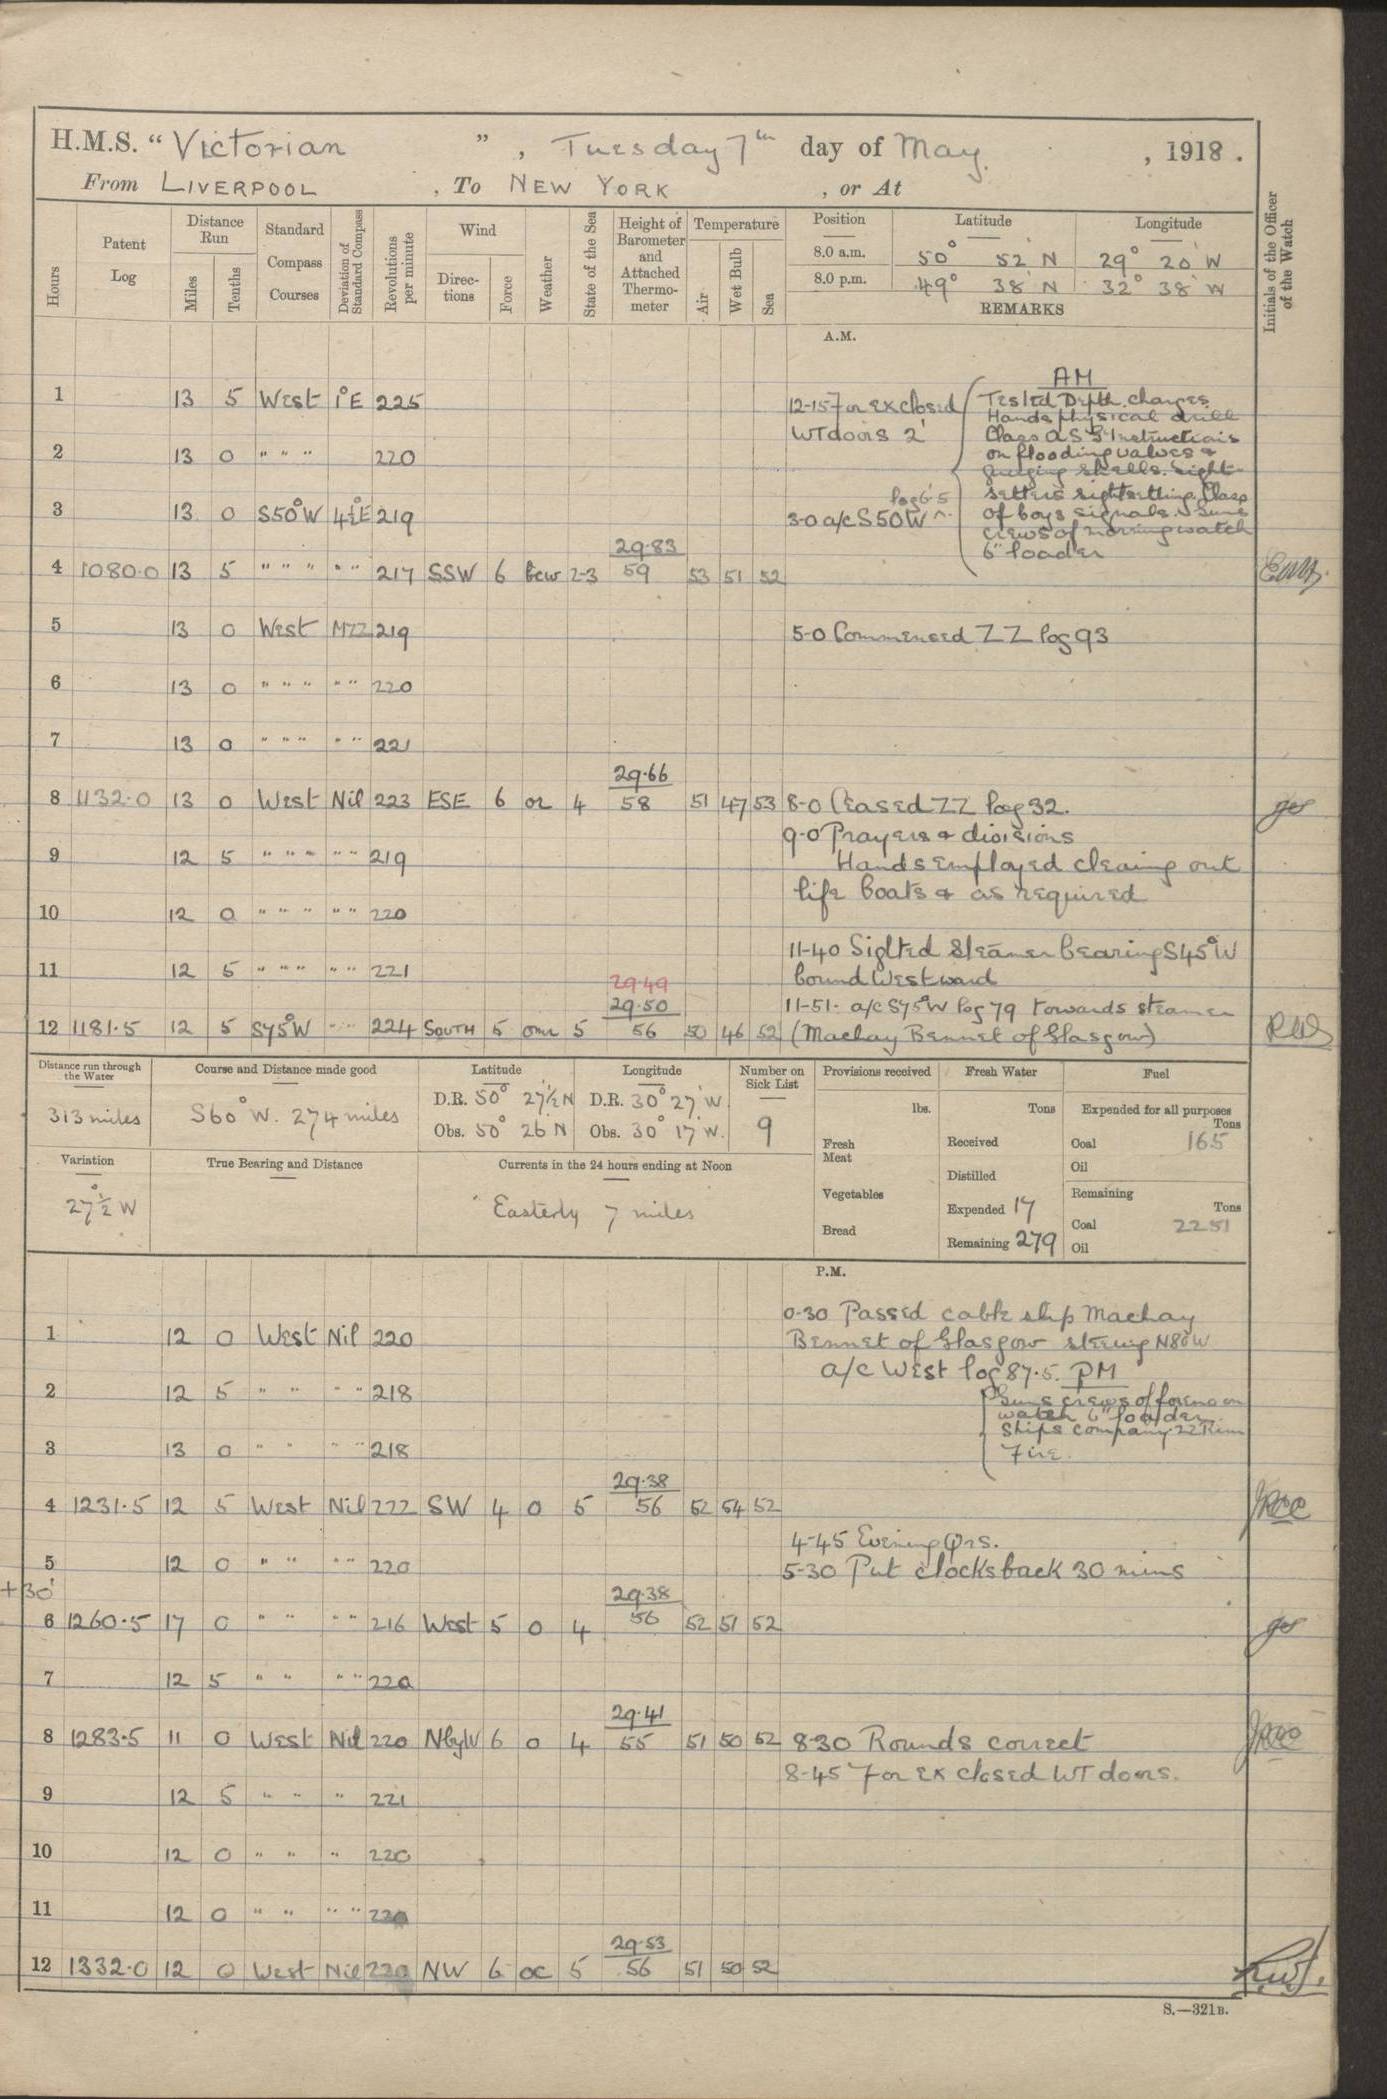 H.M.S. “ Victorian ” , Tuesday 7th day of May , 1918 .
From LIVERPOOL , To NEW YORK , or At
Hours
Patent Log
Distance Run
Miles
Tenths
Standard Compass Courses
Deviation of Standard Compass
Revolutions per minute
Wind
Direc- tions
Force
Weather
State of the Sea
Height of Barometer and Attached Thermo- meter
Temperature
Air
Wet Bulb
Sea
Position Latitude Longitude
8.0 a.m. 50° 52' N 29° 20' W
8.0 p.m. 49° 38' N 32° 38' W
REMARKS
Initials of the Officer of the Watch
A.M.
AM
Tested Depth charges
Hands physical drill
Class Instructions
on flooding valves &
shells. Sight
setters sightsetting. Class
of boys signals. Guns
crews of morning watch
6" loader
1 13 5 West 1°E 225 12-15 For ex closed
WT doors 2'
2 13 0 " " " 220
log 6.5
3 13 0 S50°W 4½°E 219 3-0 a/c S50W ^
29.83
4 1080.0 13 5 " " " " " 217 SSW 6 bcw 2-3 59 53 51 52
5 13 0 West MZZ 219 5-0 Commenced ZZ log 93
6 13 0 " " " " " 220
7 13 0 " " " " " 221
29.66
8 1132.0 13 0 West Nil 223 ESE 6 or 4 58 51 47 53 8-0 Ceased ZZ log 32.
9-0 Prayers & divisions
9 12 5 " " " " " 219 Hands employed cleaing out
life boats & as required
10 12 0 " " " " " 220
11-40 Sighted steamer bearing S45°W
11 12 5 " " " " " 221 bound Westward
29.49
29.50 11-51. a/c S75°W log 79 towards steamer
12 1181.5 12 5 S75°W " " 224 SOUTH 5 omr 5 56 50 46 52 (Mackay Bennet of Glasgow)
Distance run through the Water
313 miles
Course and Distance made good
S60°W. 274 miles
Latitude
D.R. 50° 27½' N
Obs. 50° 26 N
Longitude
D.R. 30° 27' W
Obs. 30° 17' W.
Number on Sick List
9
Provisions received
lbs.
Fresh Meat
Vegetables
Bread
Fresh Water
Tons
Received
Distilled
Expended 17
Remaining 279
Fuel
Expended for all purposes
Tons
Coal 165
Oil
Remaining
Tons
Coal 2251
Oil
Variation
27½° W
True Bearing and Distance
Currents in the 24 hours ending at Noon
Easterly 7 miles
P.M.
0-30 Passed cable ship Mackay
1 12 0 West Nil 220 Bennet of Glasgow steering N80W
a/c West log 87.5. PM
2 12 5 " " " " 218 Guns crews of forenoon
watch 6" loader.
Ships company 22 Rim
3 13 0 " " " " 218 Fire.
29.38
4 1231.5 12 5 West Nil 222 SW 4 0 5 56 52 54 52
4-45 Evening Qrs.
5 12 0 " " " " 220 5-30 Put clocks back 30 mins
+30'
29.38
6 1260.5 17 0 " " " " 216 West 5 0 4 56 52 51 52
7 12 5 " " " " 220
29.41
8 1283.5 11 0 West Nil 220 NbyW 6 0 4 55 51 50 52 8-30 Rounds correct
8-45 For ex closed WT doors.
9 12 5 " " " 221
10 12 0 " " " 220
11 12 0 " " " " 220
29.53
12 1332.0 12 0 West Nil 220 NW 6 oc 5 56 51 50 52
S.—321B.